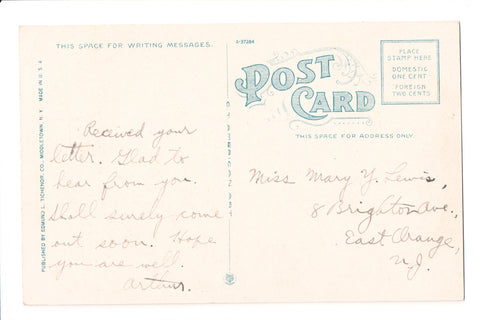 THIS SPACE FOR WRITING MESSAGES.
A-37284
POST
CARD
THIS SPACE FOR ADDRESS ONLY.
PLACE
STAMP HERE
DOMESTIC
ONE CENT
FOREIGN
TWO CENTS
PUBLISHED BY EDMUND L. TICHENOR, CO. MIDDLETOWN, N. Y. MADE IN U. S. A.
Received your
letter. Glad to
hear from you.
Shall surely come
out soon. Hope
you are well.
Arthur.
Miss Mary Y. Lewis,
8 Brighton Ave.,
East Orange,
N.J.